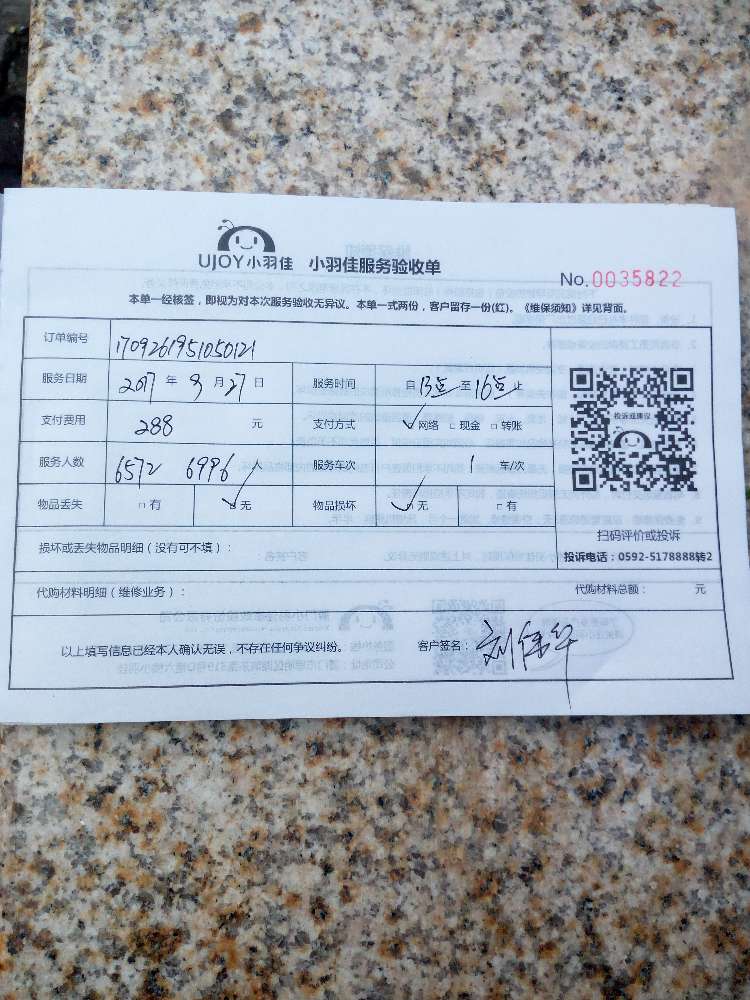 UJOY小羽佳 小羽佳服务验收单
No.0035822
本单一经核签，即视为对本次服务验收无异议。本单一式两份，客户留存一份(红)。《维保须知》详见背面。
订单编号 1709261951050121
服务日期 2017 年 9 月 27 日 服务时间 自 13点 至 16点 止
支付费用 288 元 支付方式 ✓网络 □现金 □转账
投诉或建议
服务人数 6572 6996 人 服务车次 1 车/次
物品丢失 □有 ✓无 物品损坏 ✓无 □有
扫码评价或投诉
损坏或丢失物品明细（没有可不填）：
投诉电话：0592-5178888转2
代购材料明细（维修业务）： 代购材料总额： 元
以上填写信息已经本人确认无误，不存在任何争议纠纷。 客户签名：刘伟华